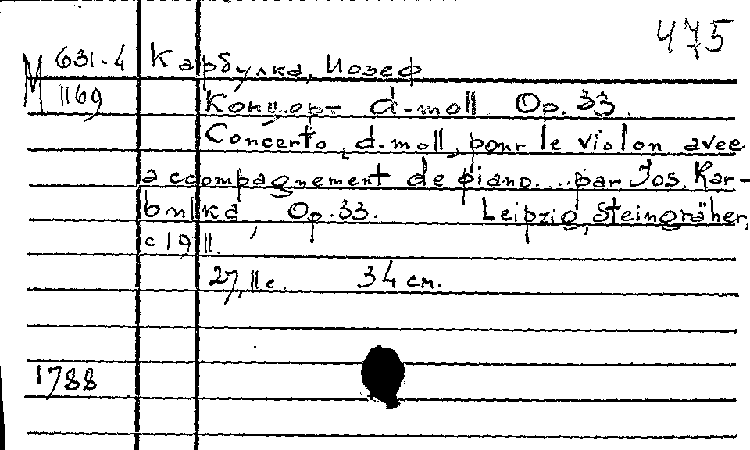 475
М 631-4 Карбулка, Иозеф
1169 Концерт d-moll Op. 33.
Concerto, d-moll, pour le violon avec
accompagnement de piano... par Jos. Kar-
bulka Op. 33. Leipzig, Steingräber,
c 1911.
27, 11 c. 34 cm.
1788